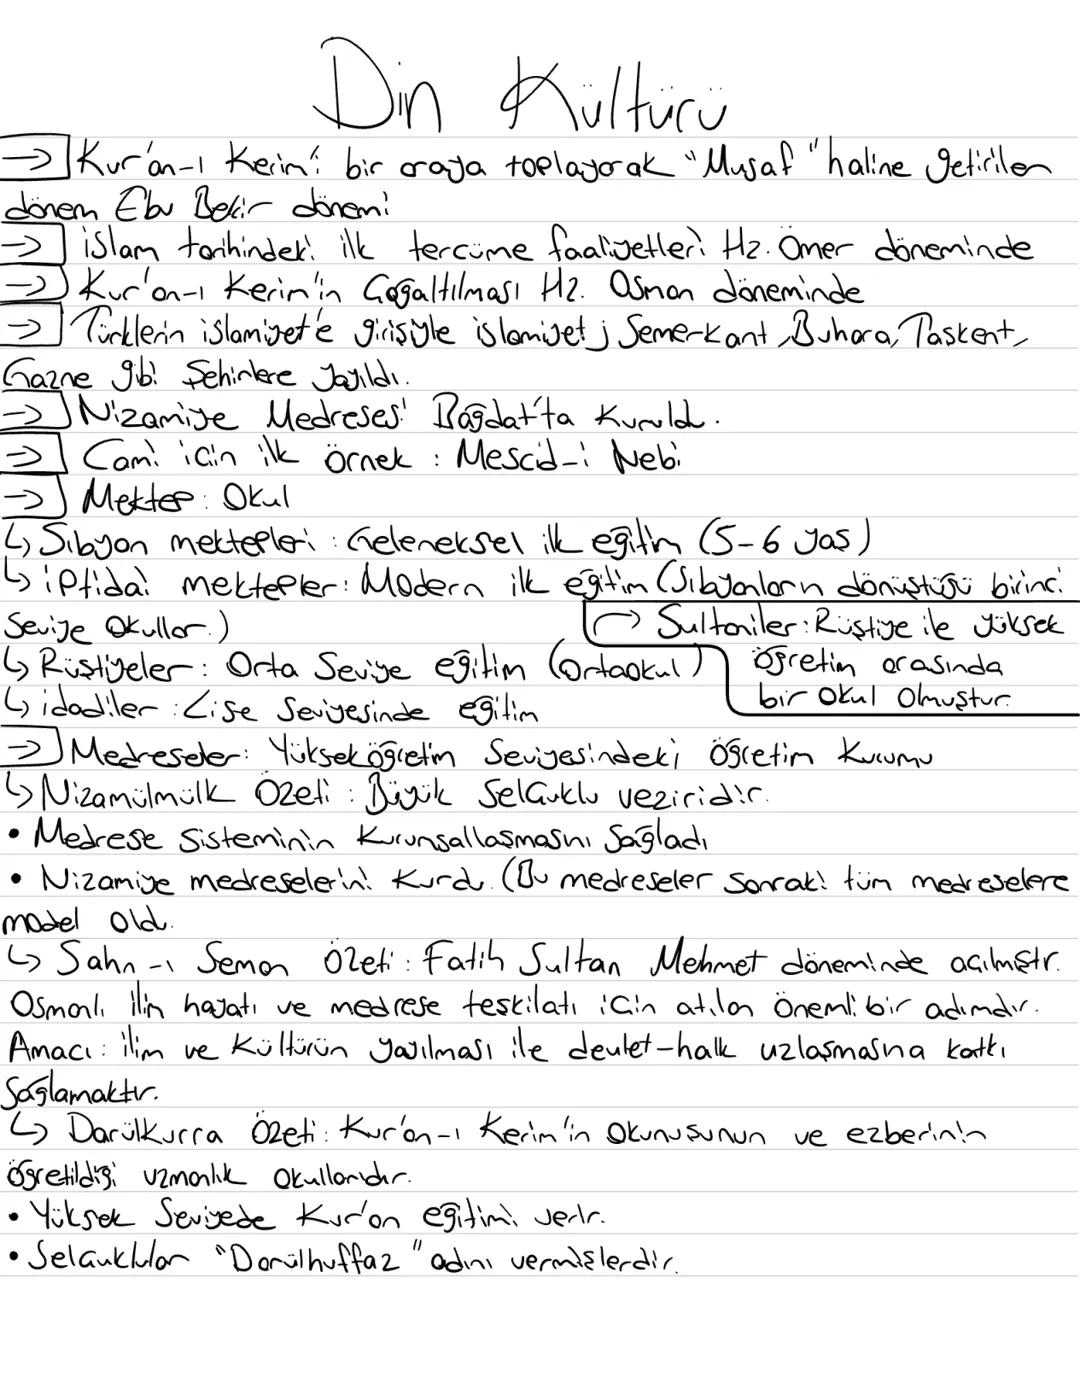 Din Kültürü
→ Kur'ân-ı Kerim'i bir araya toplayarak "Muşaf" haline getirilen
dönem Ebu Bekir dönemi
→ islam tarihindeki ilk tercüme faaliyetleri Hz. Ömer döneminde
→ Kur'an-ı Kerim'in Çoğaltılması Hz. Osman döneminde
→ Türklerin islamiyet'e girişiyle islamiyet; Semerkant, Buhara, Taşkent,
Gazne gibi Şehirlere Yayıldı.
→ Nizamiye Medresesi Bağdat'ta Kuruldu.
→ Cami için ilk örnek : Mescid-i Nebi
→ Mektep : Okul
↳ Sıbyan mektepleri : Geleneksel ilk eğitim (5-6 yaş)
↳ iptidai mektepler : Modern ilk eğitim (Sıbyanların dönüştüğü birinci
Seviye Okullar.)
→ Sultaniler : Rüştiye ile yüksek
öğretim arasında
bir Okul Olmuştur.
↳ Rüştiyeler : Orta Seviye eğitim (Ortaokul)
↳ idadiler : Lise Seviyesinde eğitim
→ Medreseler : Yüksek öğretim Seviyesindeki Öğretim Kurumu
↳ Nizamülmülk Özeti : Büyük Selçuklu veziridir.
• Medrese Sisteminin Kurumsallaşmasını Sağladı
• Nizamiye medreselerini Kurdu. (Bu medreseler Sonraki tüm medreselere
model oldu.
↳ Sahn-ı Seman Özeti : Fatih Sultan Mehmet döneminde açılmıştır.
Osmanlı ilim hayatı ve medrese teşkilatı için atılan önemli bir adımdır.
Amacı : ilim ve Kültürün yayılması ile devlet-halk uzlaşmasına katkı
Sağlamaktır.
↳ Darülkurra Özeti : Kur'ân-ı Kerim'in Okunuşunun ve ezberinin
öğretildiği uzmanlık Okullarıdır.
• Yüksek Seviyede Kur'an eğitimi verir.
• Selçuklular "Darülhuffaz" adını vermişlerdir.